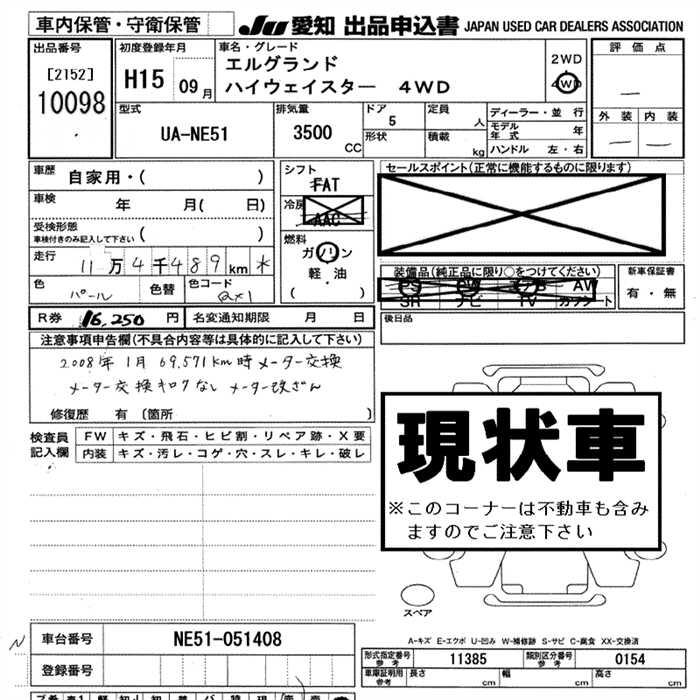 車内保管・守衛保管
JU 愛知 出品申込書 JAPAN USED CAR DEALERS ASSOCIATION
出品番号
[2152]
10098
初度登録年月
H15 09月
車名・グレード
エルグランド
ハイウェイスター 4WD
2WD
4WD
評価点
外装 内装
型式
UA-NE51
排気量
3500 CC
ドア 5
形状
定員 人
積載 kg
ディーラー・並行
モデル年式 年
ハンドル 左・右
車歴 自家用・( )
車検 年 月( 日)
受検形態
車検付きのみ記入して下さい ( )
走行 11万4千489km *
色 パール 色替 色コード QX1
シフト
FAT
冷房
AAC
燃料
ガソリン
軽・油
( )
セールスポイント(正常に機能するものに限ります)
装備品(純正品に限り○をつけてください)
PS PW AW
SR ナビ TV カワシート
新車保証書
有・無
R券 16,250 円 名変通知期限 月 日
後日品
注意事項申告欄(不具合内容等は具体的に記入して下さい)
2008年1月 69,571km時メーター交換
メーター交換キロクなし メーター改ざん
修復歴 有〔箇所 〕
検査員記入欄
FW キズ・飛石・ヒビ割・リペア跡・X要
内装 キズ・汚レ・コゲ・穴・スレ・キレ・破レ
現状車
※このコーナーは不動車も含み
ますのでご注意下さい
スペア
A-キズ E-エクボ U-凹み W-補修跡 S-サビ C-腐食 XX-交換済
N
車台番号 NE51-051408
登録番号
形式指定番号 参考 11385 類別区分番号 参考 0154
車庫証明用 参考 長さ cm 幅 cm 高さ cm